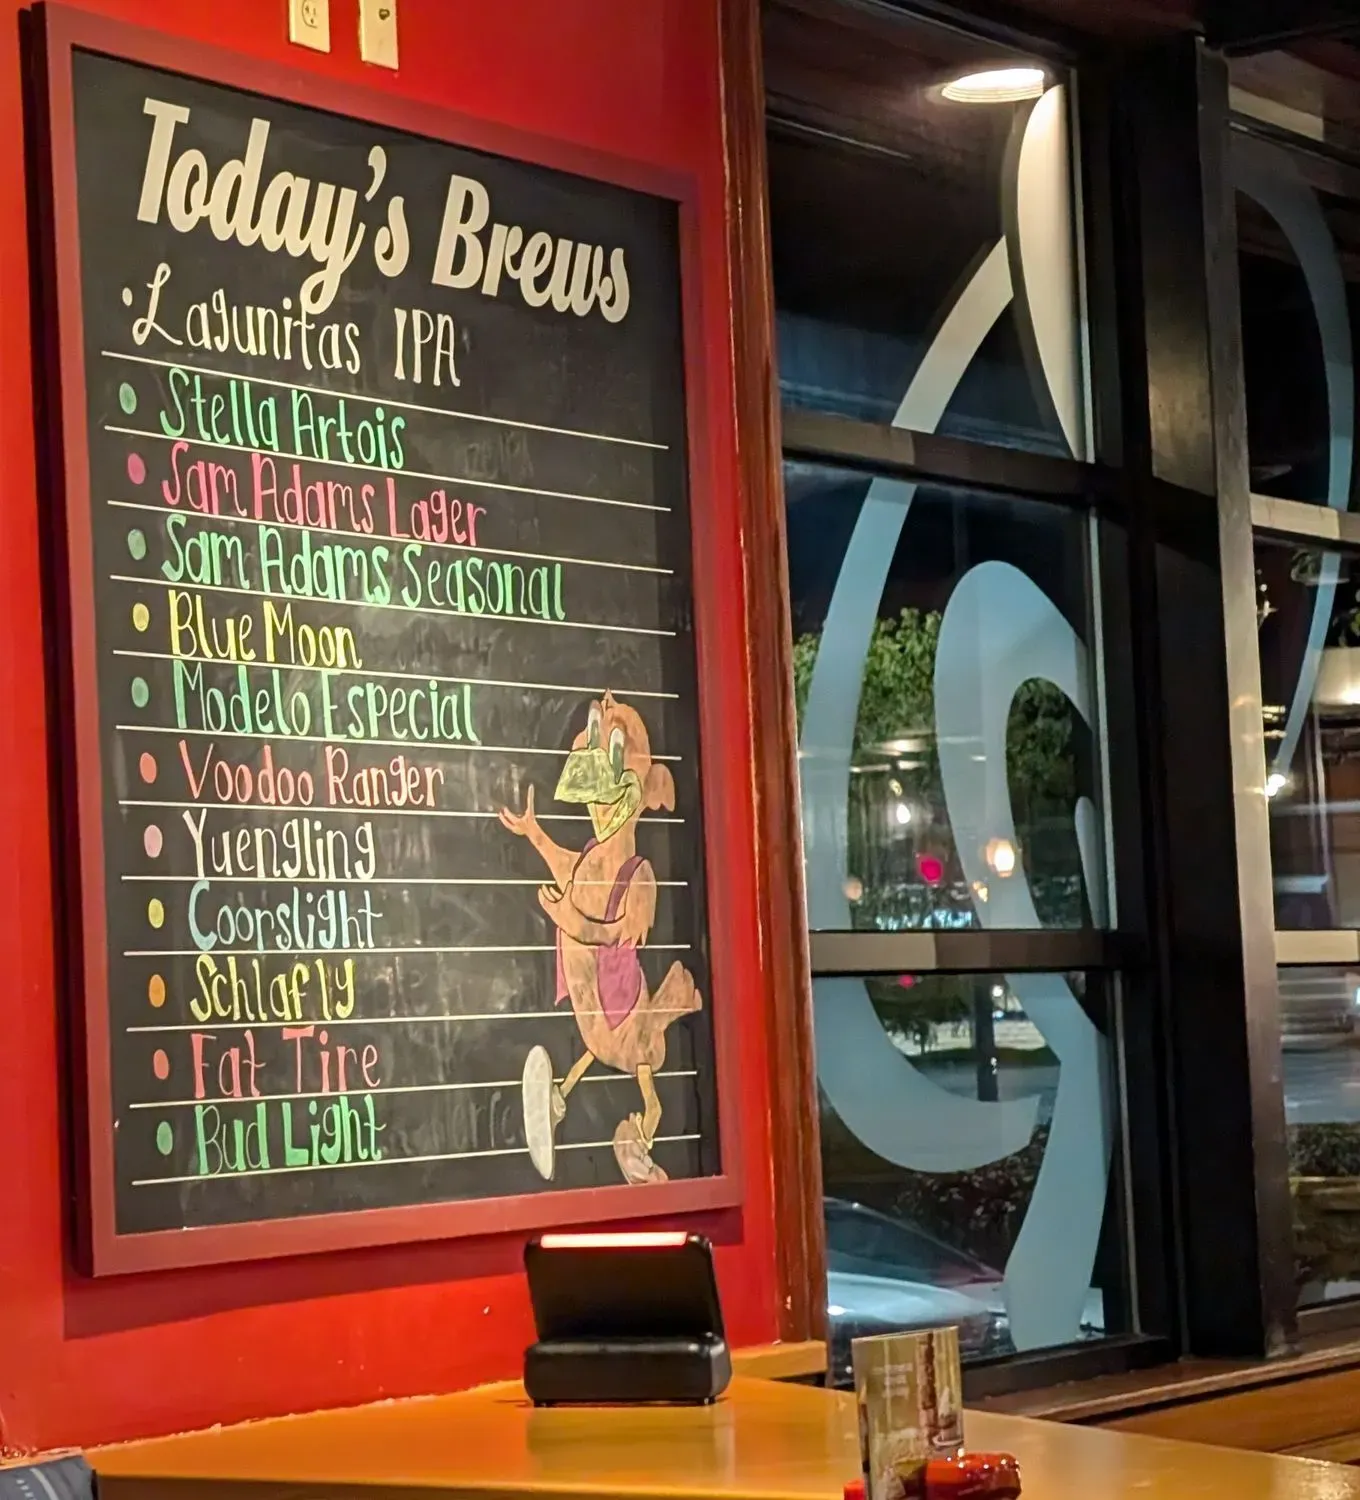 Today's Brews
• Lagunitas IPA
• Stella Artois
• Sam Adams Lager
• Sam Adams Seasonal
• Blue Moon
• Modelo Especial
• Voodoo Ranger
• Yuengling
• Coorslight
• Schlafly
• Fat Tire
• Bud Light